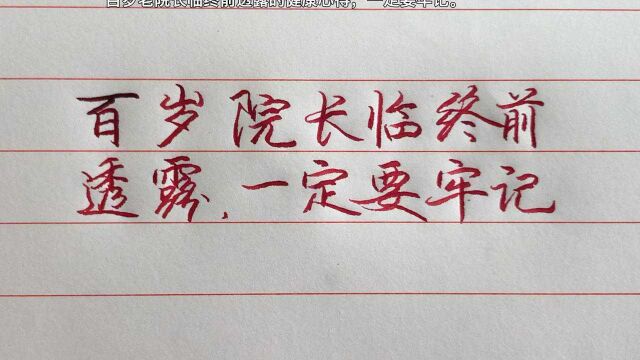 百岁老院长临终前透露的健康心得，一定要牢记。
百岁院长临终前
透露,一定要牢记